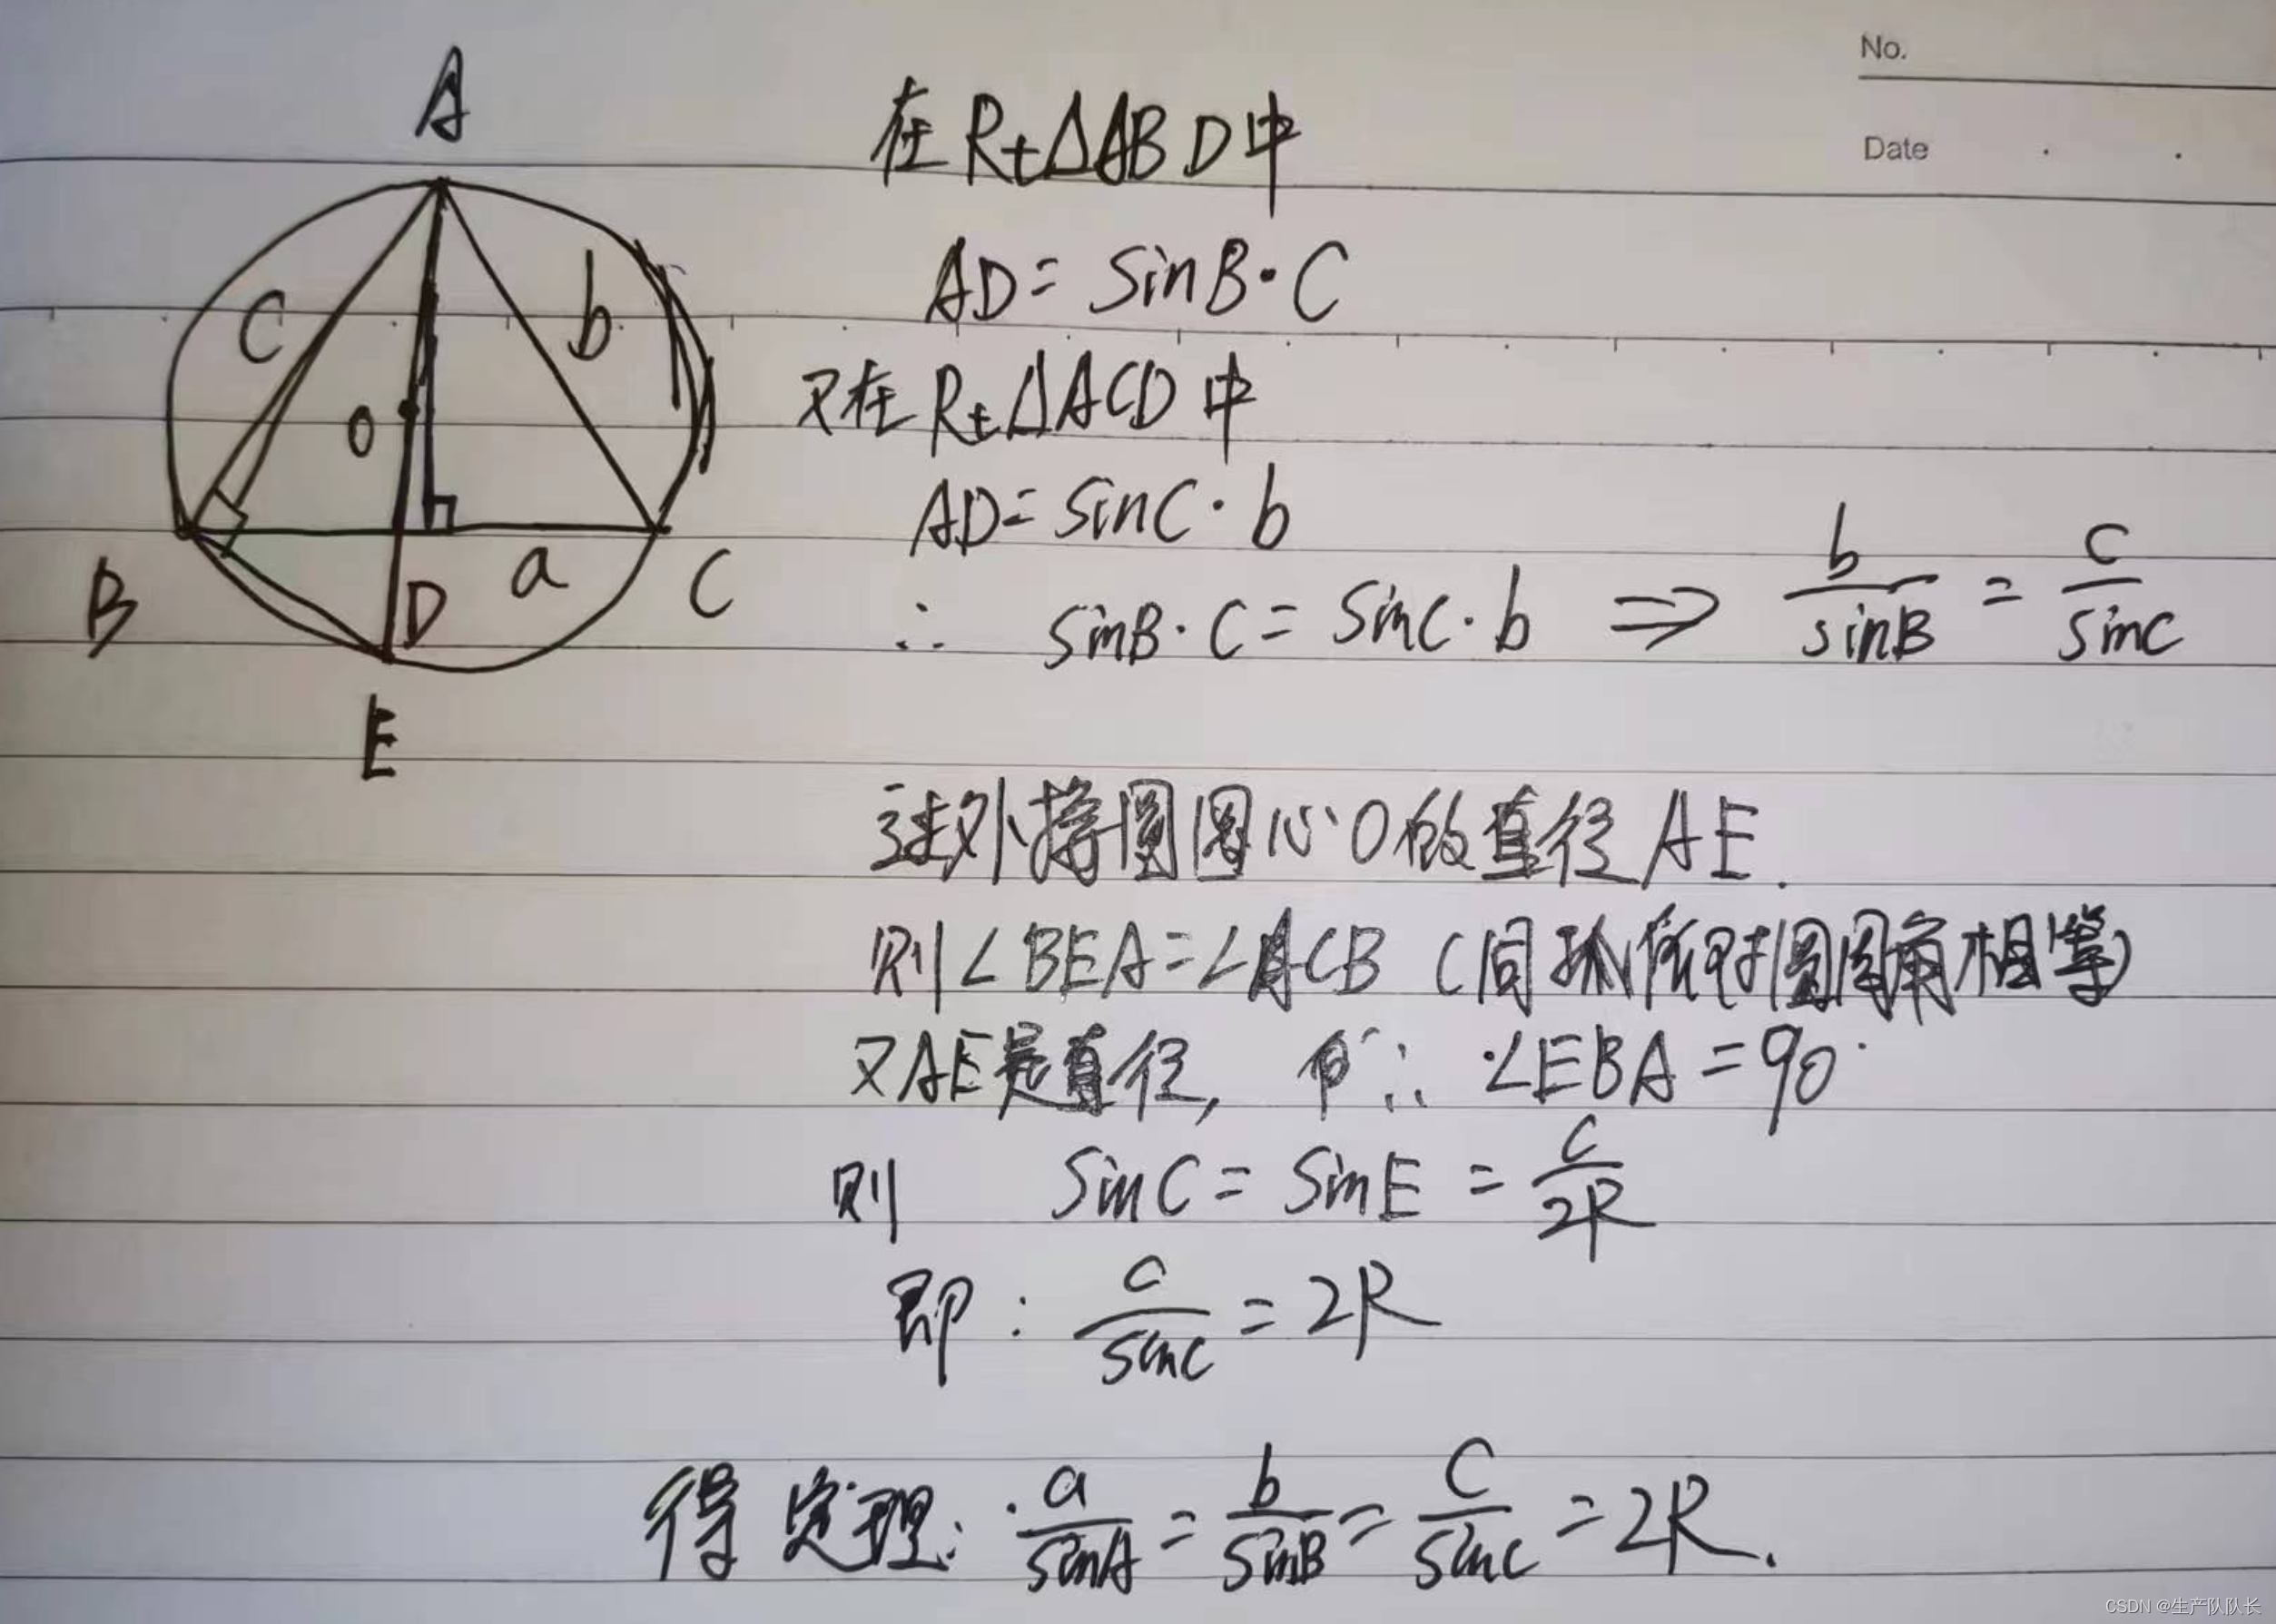 No.
Date
A
c
b
O
B
D
a
C
E
在Rt△ABD中
AD = sinB·C
又在Rt△ACD中
AD = sinC·b
∴ sinB·C = sinC·b ⇒ b/sinB = c/sinC
过外接圆圆心O做直径AE.
则∠BEA=∠ACB (同弧所对圆周角相等)
又AE是直径, ∴ ∠EBA=90°
则 sinC = sinE = c/2R
即: c/sinC = 2R
得定理: a/sinA = b/sinB = c/sinC = 2R.
CSDN @生产队队长